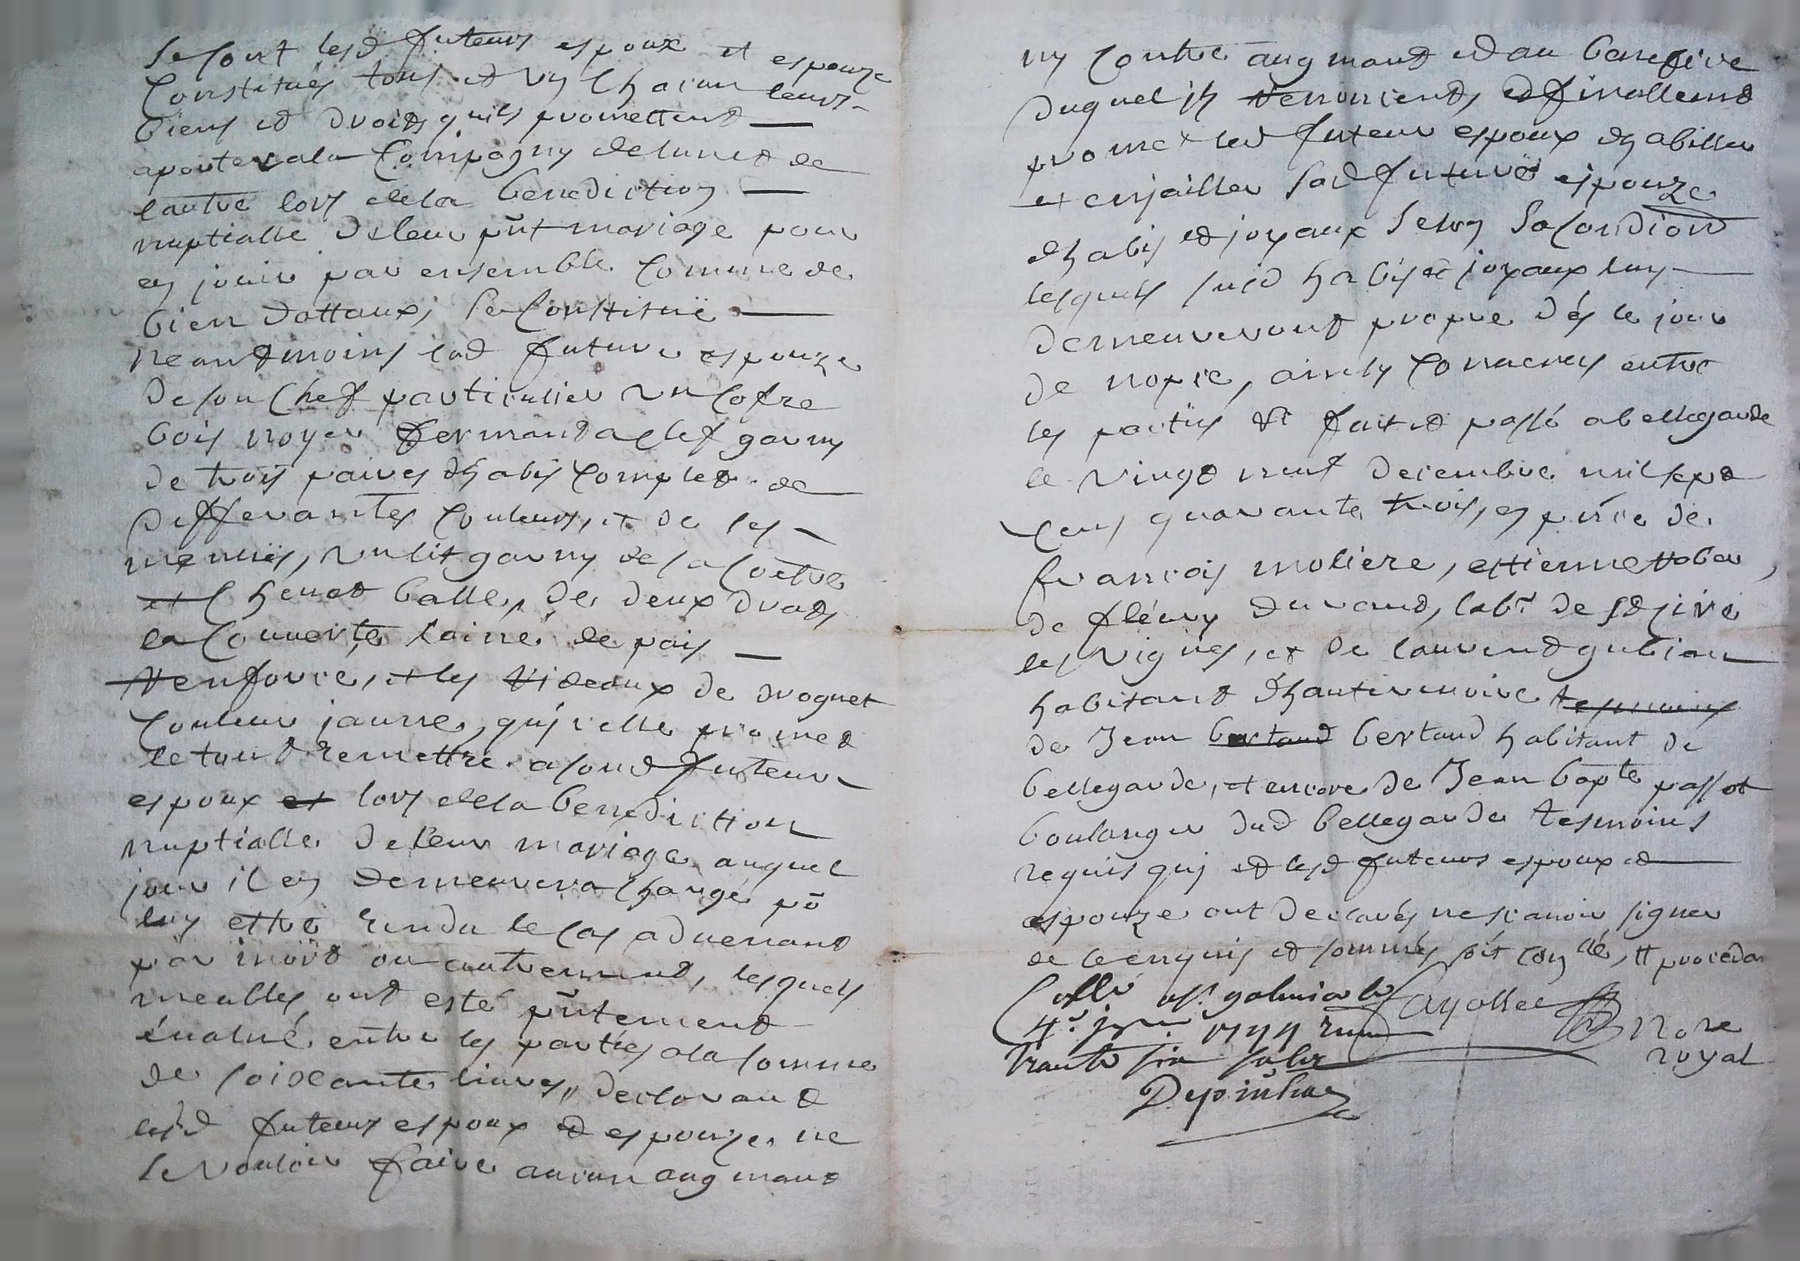 se sont lesd futeurs espoux et espouze
Constitués tous et un Chacun leurs
biens et droits quils promettent
aporter a la Compagny de lun et de
lautre lors de la benediction
nuptialle de leur pñt mariage pour
en jouir par ensemble Comme de
bien dottaux, se Constitue
neantmoins lad future espouze
de son Chef particulier un Cofre
bois noyer fermant a clef garny
de trois paires dhabis Complet de
differantes Couleurs, et de ses
menuës, un lit garny de sa Coëtre
et Chevet balle, de deux draps
la Couverte laine de païs
renforcé, et les rideaux de droguet
Couleur jaune, qu'icelle promet
le tout remettre a sond futeur
espoux et lors de la benediction
nuptialle de leur mariage auquel
jour il en demeurera Chargé põ
luy estre rendu le Cas advenant
par mort ou autrement, lesquels
meubles ont esté pñtement
évalué entre les parties a la somme
de soixante livres, declarant
lesd futeurs espoux et espouze ne
se vouloir faire aucun augmant
ny Contre augmant et au benefice
duquel ils renoncent, et finallement
promet led futeur espoux dhabiller
et enjailler sad future espouze
dhabis et joyaux selon sa Condiõn
lesquels susd habis et joyaux luy
demeureront propre dés le jour
de nopce, ainsy Convenus entre
les parties et fait et passé a bellegarde
le vingt neuf decembre mil sept
Cens quarante trois, en pñce de
francois moliere, estienne
de fléury durand, labr de St Ciré
les vignes, et de laurend gubian
habitant dhauterivoire tesmoins
de Jean bertaud bertaud habitant de
bellegarde, et encore de Jean bapte passot
boulanger dud bellegarde tesmoins
requis qui et lesd futeurs espoux et
espouze ont declarés ne scavoir signer
de ce enquis et sommés
Collé a St galmier le Cayollet
4e janv 1744 No re
trante six sols royal